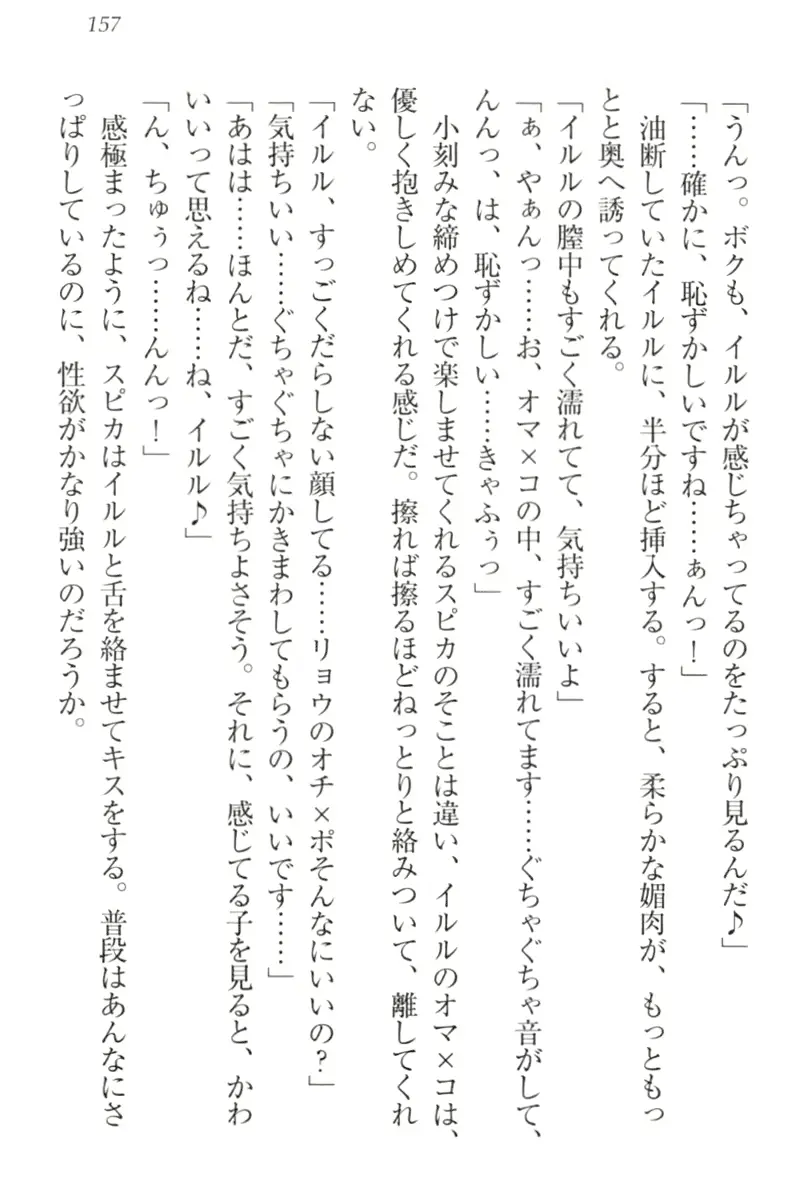 157
「うんっ。ボクも、イルルが感じちゃってるのをたっぷり見るんだ♪」
「……確かに、恥ずかしいですね……ぁんっ！」
　油断していたイルルに、半分ほど挿入する。すると、柔らかな媚肉が、もっともっ
とと奥へ誘ってくれる。
「イルルの膣中もすごく濡れてて、気持ちいいよ」
「ぁ、やぁんっ……お、オマ×コの中、すごく濡れてます……ぐちゃぐちゃ音がして、
んんっ、は、恥ずかしい……きゃふぅっ」
　小刻みな締めつけで楽しませてくれるスピカのそことは違い、イルルのオマ×コは、
優しく抱きしめてくれる感じだ。擦れば擦るほどねっとりと絡みついて、離してくれ
ない。
「イルル、すっごくだらしない顔してる……リョウのオチ×ポそんなにいいの？」
「気持ちいい……ぐちゃぐちゃにかきまわしてもらうの、いいです……」
「あはは……ほんとだ、すごく気持ちよさそう。それに、感じてる子を見ると、かわ
いいって思えるね……ね、イルル♪」
「ん、ちゅぅっ……んんっ！」
　感極まったように、スピカはイルルと舌を絡ませてキスをする。普段はあんなにさ
っぱりしているのに、性欲がかなり強いのだろうか。